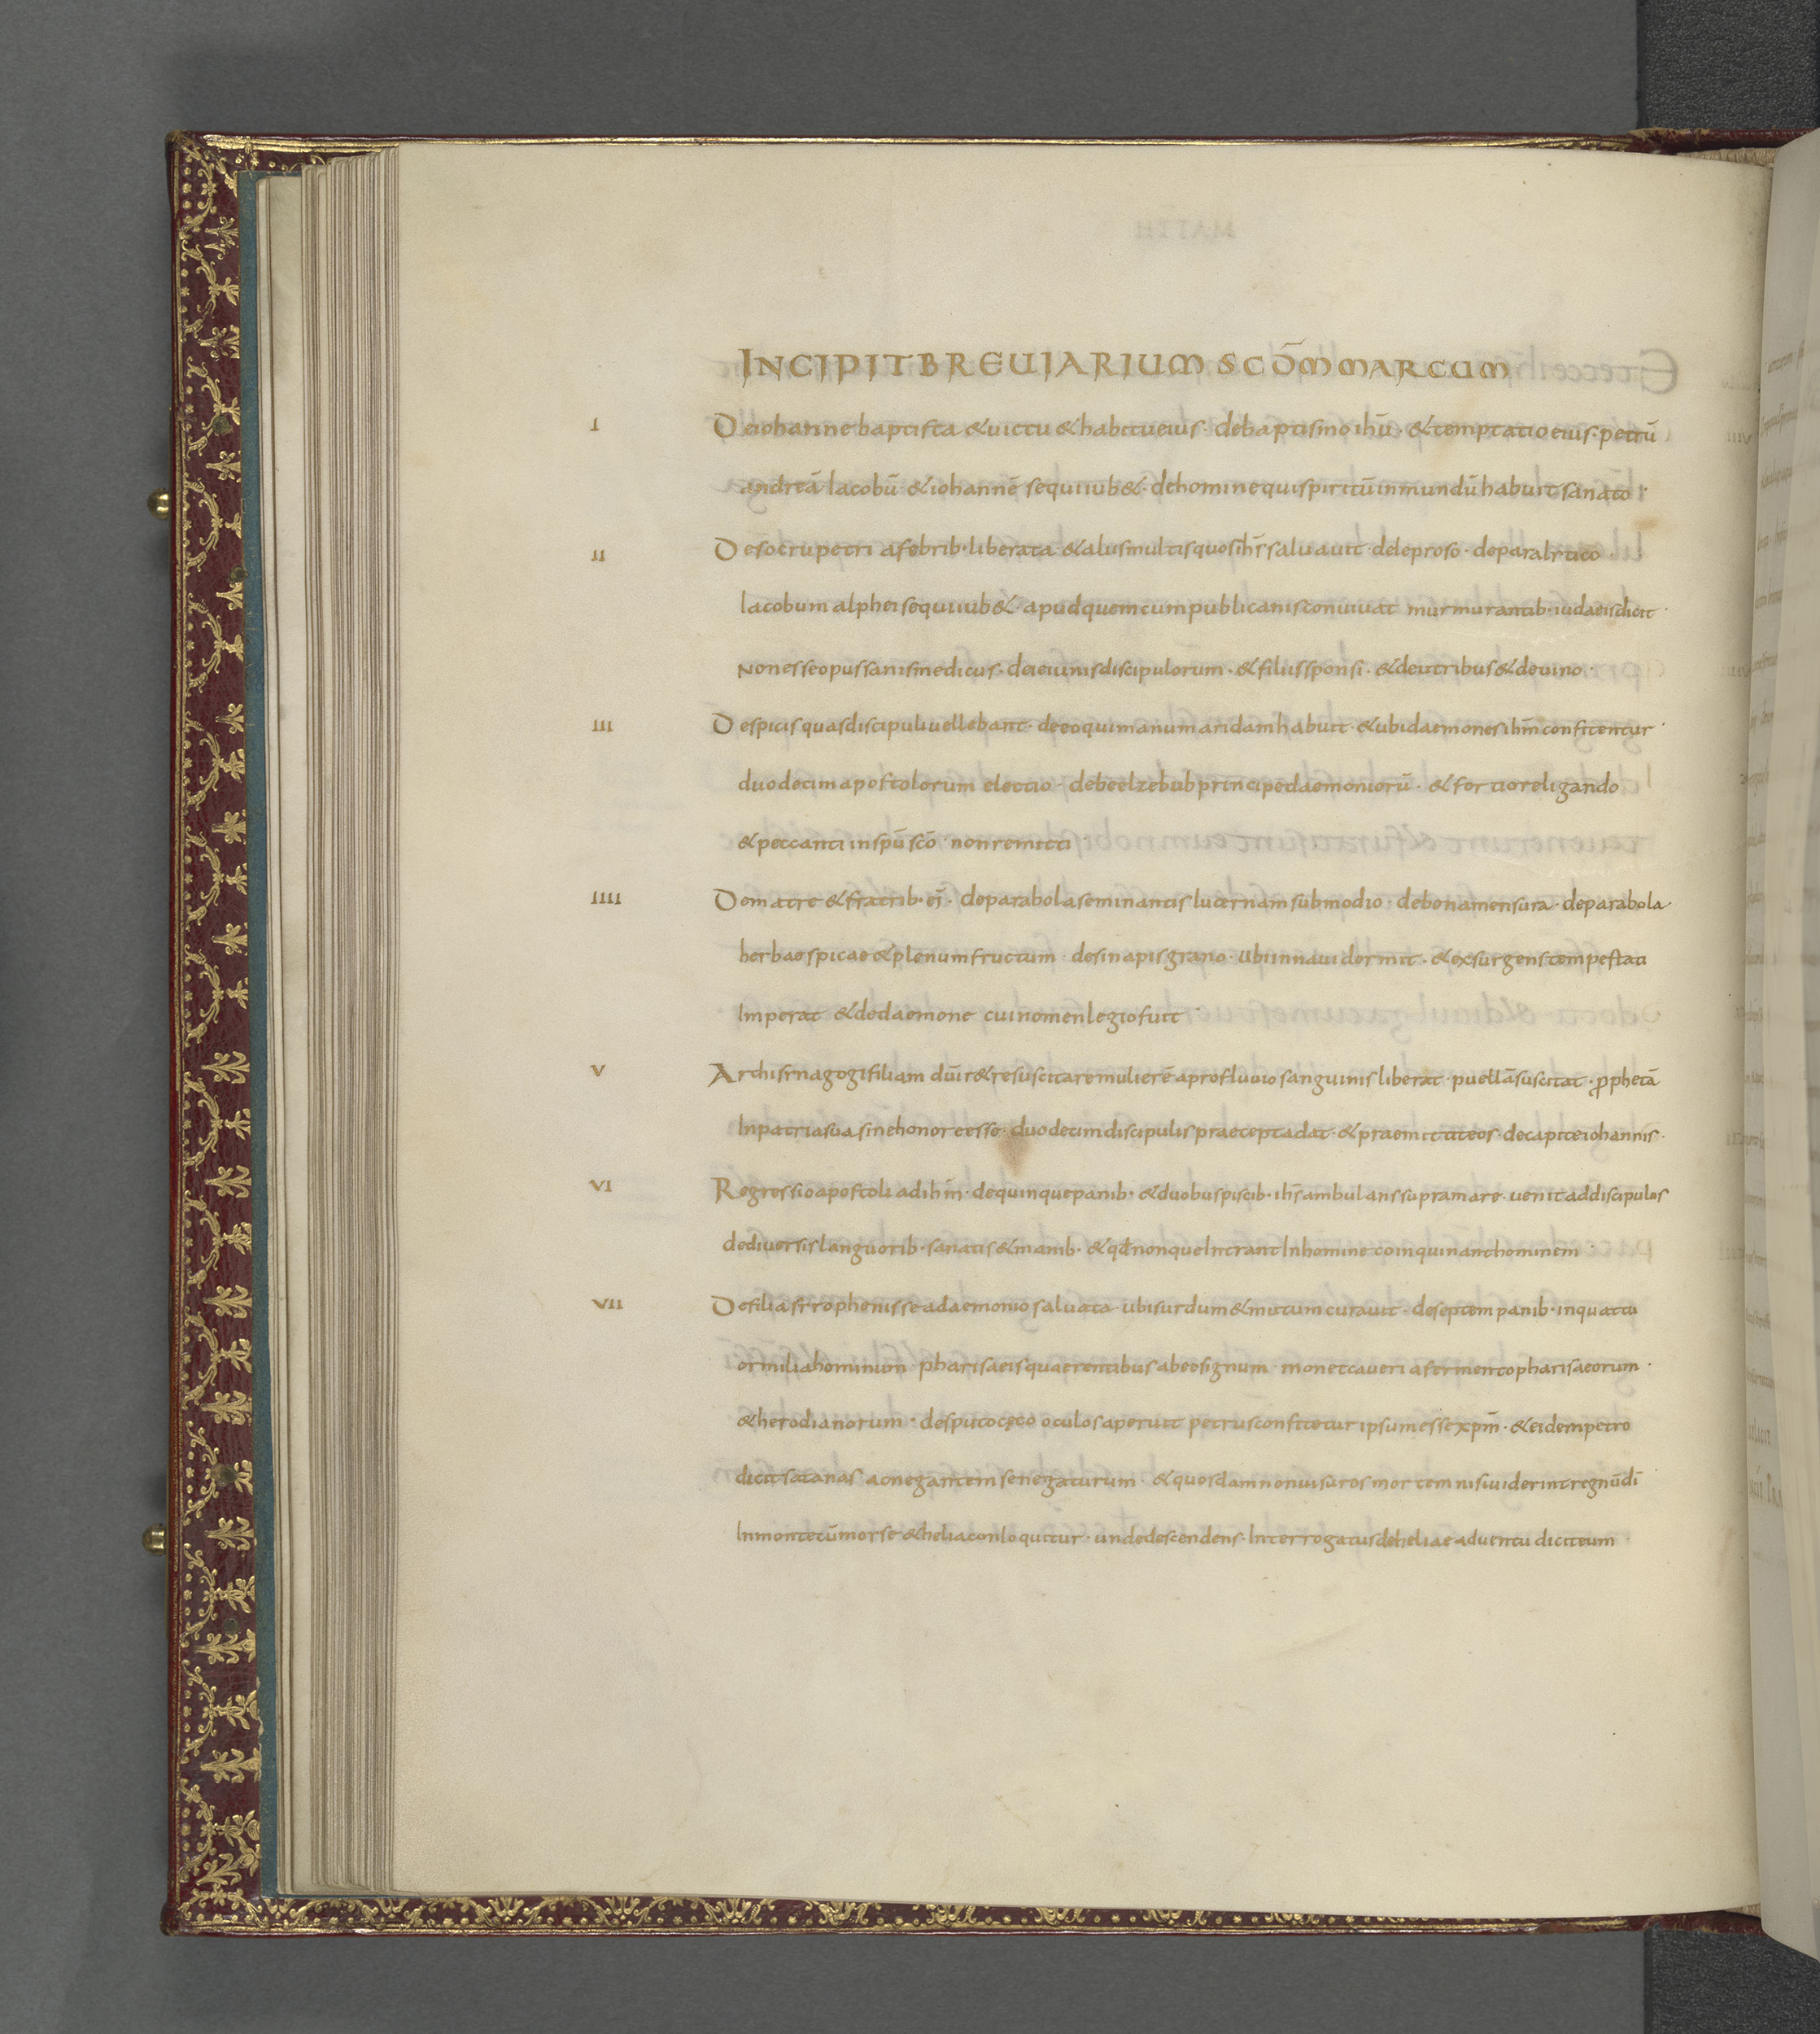 INCIPIT BREUIARIUM SCD̄M MARCUM
I De iohanne baptista & uictu & habitu eius · de baptismo ihū · & temptatio eius · petrū
andreā Iacobū · & iohannē sequi iub& · de homine qui spiritū inmundū habuit sanato ·
II De socru petri a febrib· liberata & aliis multis quos ihs̄ saluauit · de leproso · de paralytico ·
Iacobum alphei sequi iub& · apud quem cum publicanis conuiuat murmurantib· iudaeis dicit ·
Non esse opus sanis medicus · de ieiuniis discipulorum · & filiis sponsi · & de utribus & de uino ·
III De spicis quas discipuli uellebant · de eo qui manum aridam habuit · & ubi daemones ihm̄ confitentur ·
duodecim apostolorum electio · de beelzebub principe daemoniorū · & fortiore ligando
& peccanti in spū scō · non remitti ·
IIII De matre & fratrib· ei᾿ · de parabola seminantis lucernam sub modio · de bona mensura · de parabola
herbae spicae & plenum fructum · de sinapis grano · ubi in naui dormit · & exsurgens tempestati
Imperat & de daemone cui nomen legio fuit ·
V Archisynagogi filiam dūi r& resuscitare mulierē a profluuio sanguinis liberat · puellā suscitat · ꝓphetā
In patria sua sine honore esse · duodecim discipulis praecepta dat · & praemittit eos · de capite iohannis ·
VI Regressio apostoli ad ihm̄ · de quinque panib· & duobus piscib· ihs̄ ambulans supra mare · uenit ad discipulos
de diuersis languorib· sanatis & manib· & qd̄ non que Intrant In homine coinquinant hominem ·
VII De filia syrophenisse a daemonio saluata · ubi surdum & mutum curauit · de septem panib· in quattu
or milia hominum · pharisaeis quaerentibus ab eo signum · monet caueri a fermento pharisaeorum ·
& herodianorum · de sputo cęco oculos aperuit petrus confitetur ipsum esse xpm̄ · & eidem petro
dicit satanas ac negantem se negaturum · & quosdam non uisuros mortem nisi uiderint regnū dī
In monte cū moyse & helia conloquitur · unde descendens · Interrogatus de heliae aduentu dicit eum ·